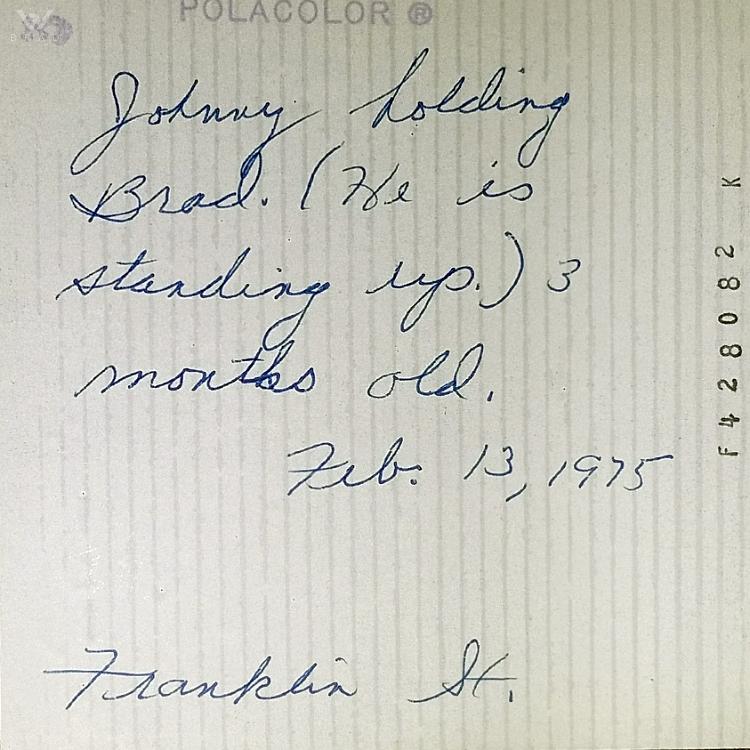 POLACOLOR ®
Johnny holding
Brad. (He is
standing up.) 3
months old.
Feb. 13, 1975
Franklin St.
F428082 K